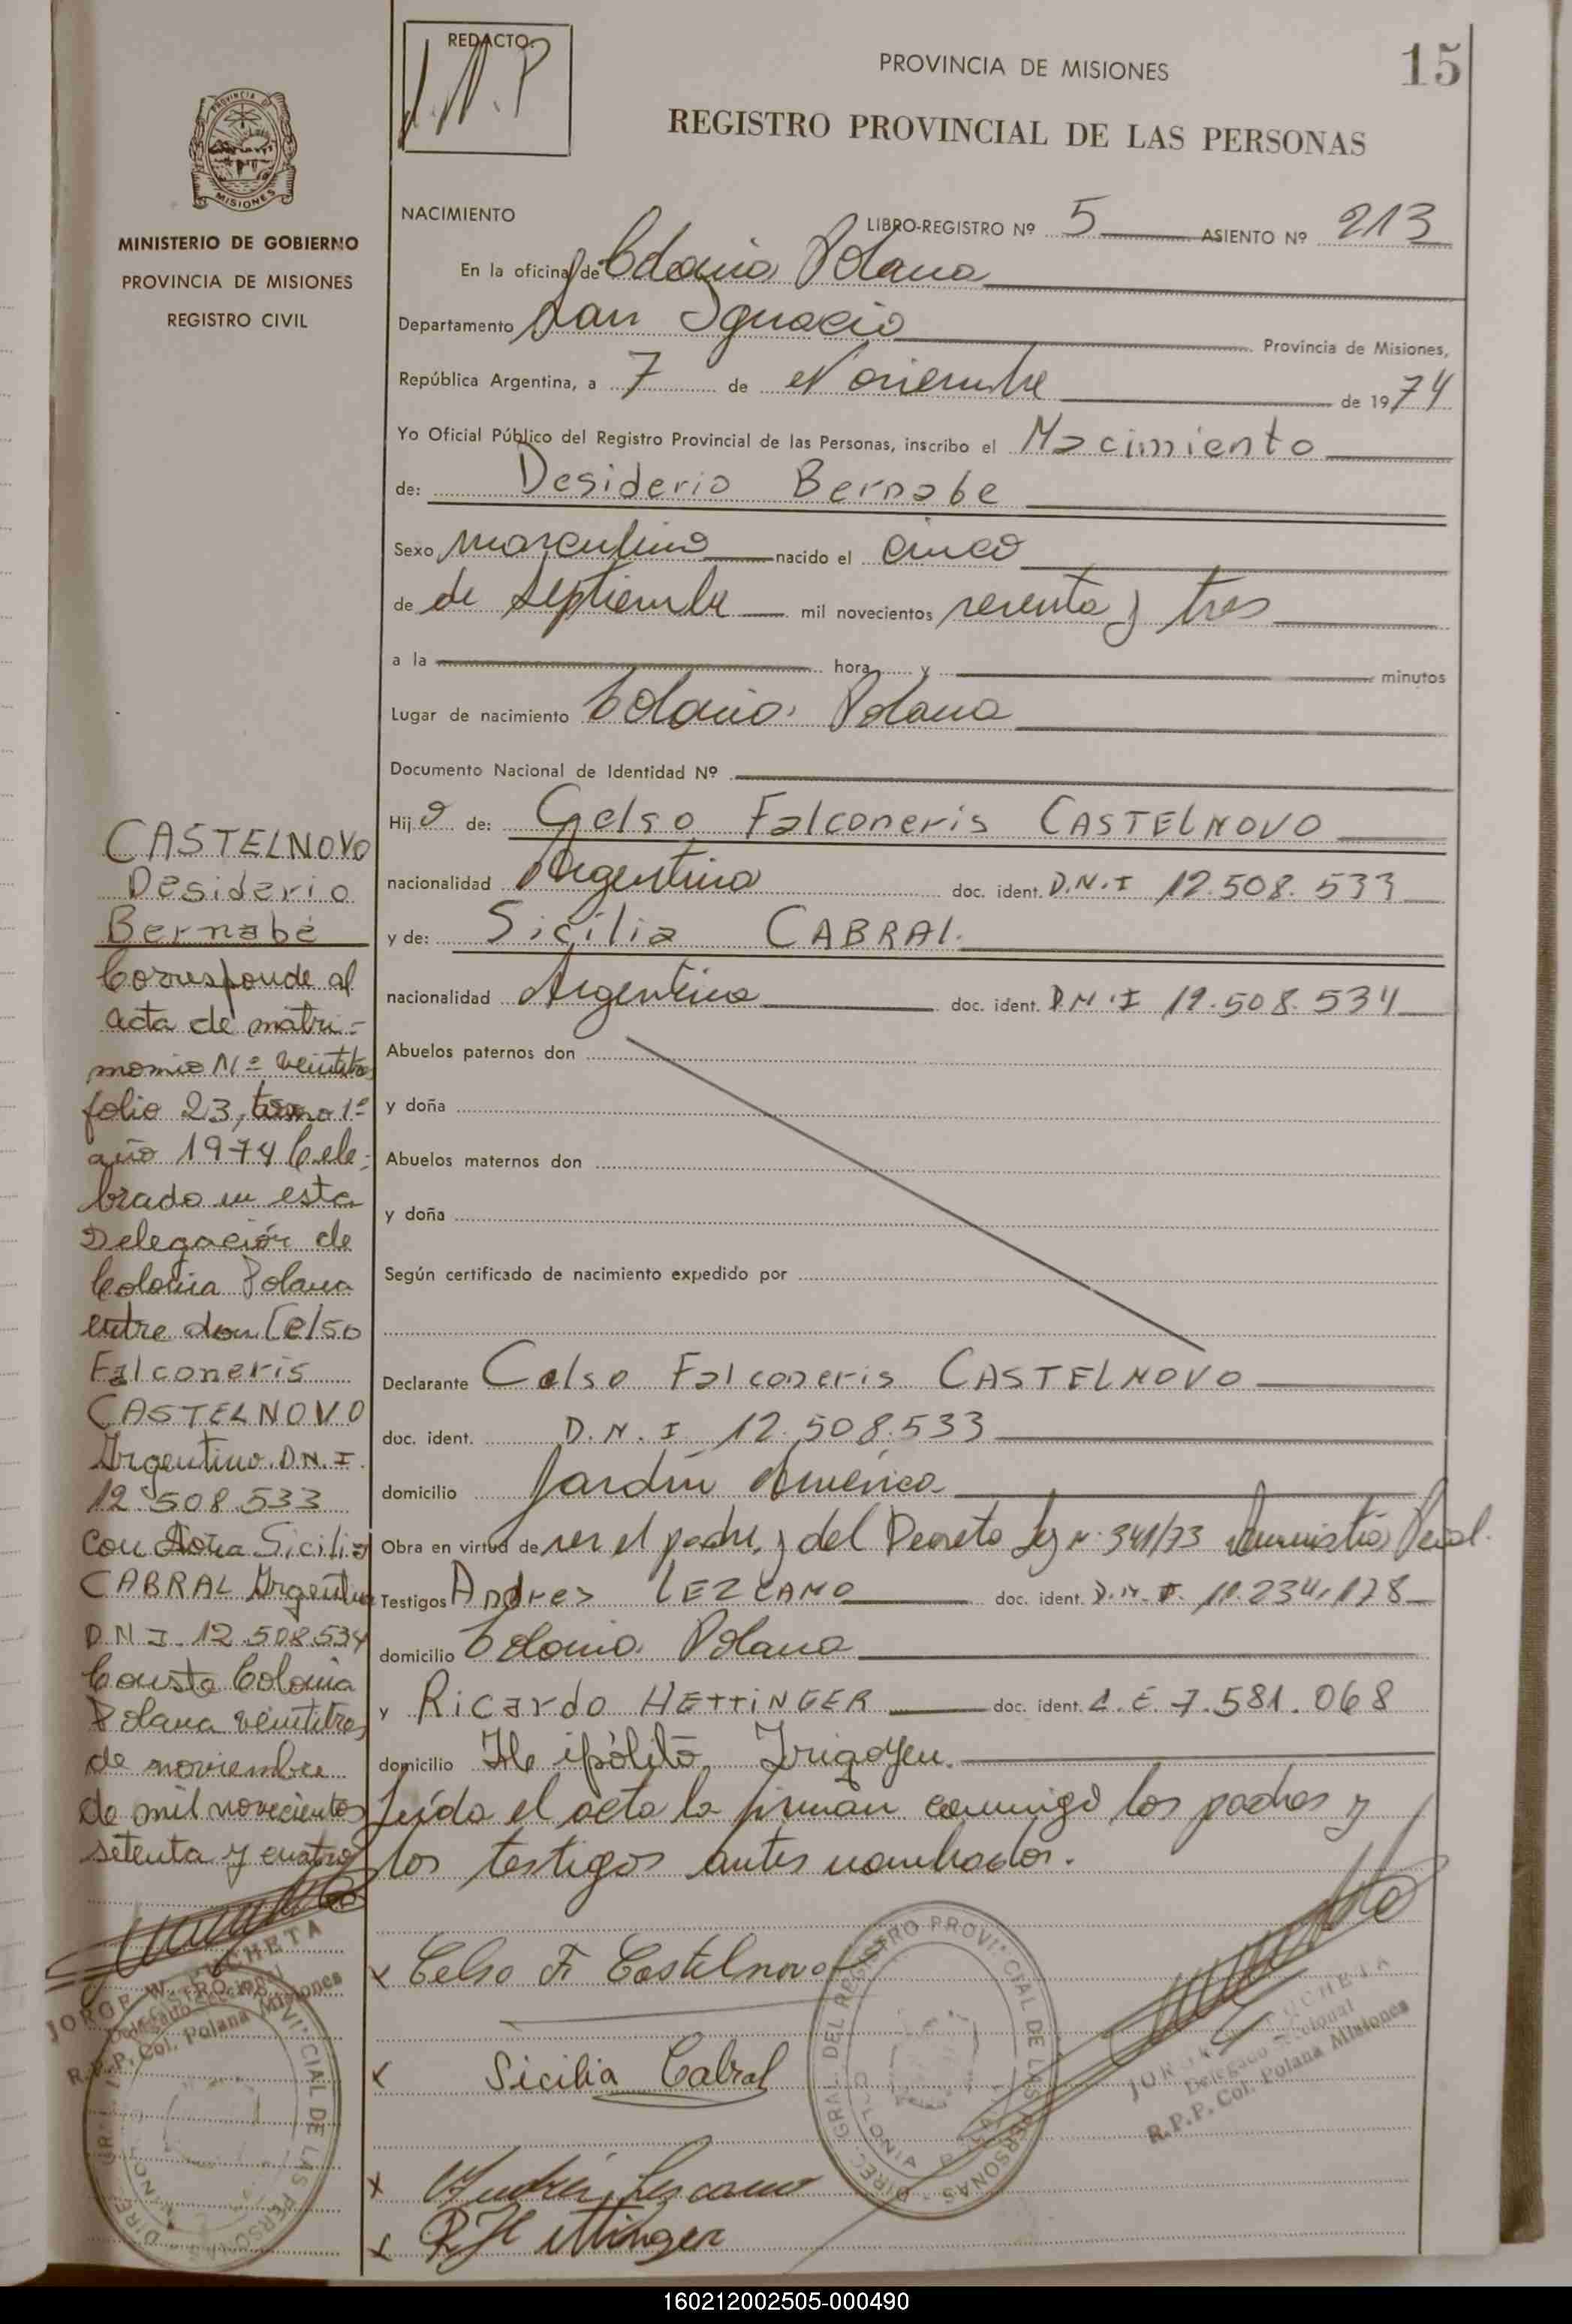 REDACTO.
J.N.P
PROVINCIA DE MISIONES
15
REGISTRO PROVINCIAL DE LAS PERSONAS
PROVINCIA DE
MISIONES
MINISTERIO DE GOBIERNO
PROVINCIA DE MISIONES
REGISTRO CIVIL
NACIMIENTO
LIBRO-REGISTRO Nº 5 ASIENTO Nº 213
En la oficina de Colonia Polana
Departamento San Ignacio Provincia de Misiones,
República Argentina, a 7 de Noviembre de 1974
Yo Oficial Público del Registro Provincial de las Personas, inscribo el Nacimiento
de: Desiderio Bernabe
Sexo masculino nacido el cinco
de de septiembre mil novecientos sesenta y tres
a la hora y minutos
Lugar de nacimiento Colonia Polana
Documento Nacional de Identidad Nº
Hijo de: Celso Falconeris CASTELNOVO
nacionalidad Argentina doc. ident. D.N.I 12.508.533
y de: Sicilia CABRAL
nacionalidad Argentina doc. ident. D.N.I 12.508.534
Abuelos paternos don
y doña
Abuelos maternos don
y doña
Según certificado de nacimiento expedido por
Declarante Celso Falconeris CASTELNOVO
doc. ident. D.N.I 12.508.533
domicilio Jardín América
Obra en virtud de ser el padre, y del Decreto Ley Nº 341/73 Amnistía
Testigos Andres LEZCANO doc. ident. D.N.I. 11.234.178
domicilio Colonia Polana
y Ricardo HETTINGER doc. ident. L.E. 7.581.068
domicilio Hipólito Irigoyen.
Leída el acta la firman conmigo los padres y
los testigos antes nombrados.
Celso F. Castelnovo
Sicilia Cabral
Andrés Lescano
R. Hettinger
CASTELNOVO
Desiderio
Bernabé
Corresponde al
acta de matri-
monio Nº veintitres
folio 23, tomo 1º
año 1974 Cele-
brado en esta
Delegación de
Colonia Polana
entre don Celso
Falconeris
CASTELNOVO
Argentino D.N.I.
12.508.533
con doña Sicilia
CABRAL Argentina
D.N.I. 12.508.534
Conste Colonia
Polana veintitres
de noviembre
de mil novecientos
setenta y cuatro
JORGE W. CHETA
R.P.P. Col. Polana Misiones
DIREC. GRAL. DEL REGISTRO PROVINCIAL DE LAS PERSONAS
Delegado Seccional
R.P.P. Col. Polana Misiones
160212002505-000490